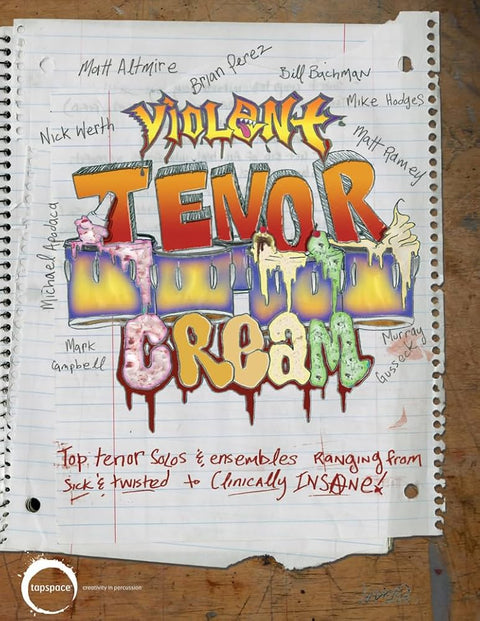 Matt Altmire
Brian Perez
Bill Bachman
Mike Hodges
Nick Werth
VIOLENT
Matt Ramey
TENOR
Michael Apodaca
CREAM
Mark
Campbell
Murray
Gussack
Top tenor Solos & ensembles Ranging from
Sick & twisted to Clinically INSANE!
tapspace
creativity in percussion